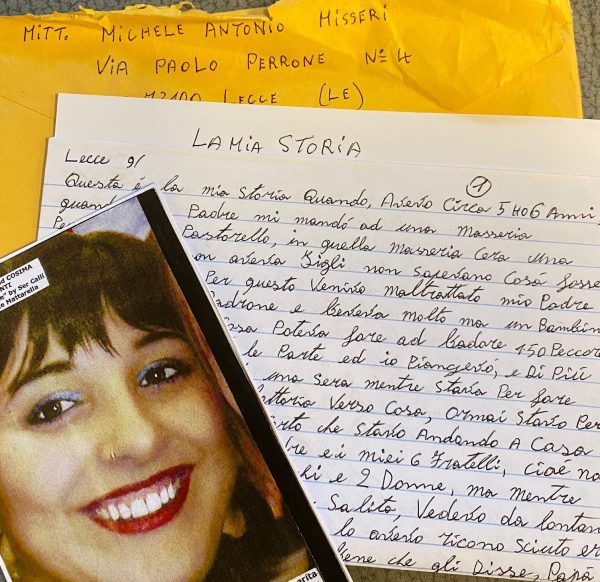 MITT. MICHELE ANTONIO MISSERI
VIA PAOLO PERRONE N= 4
73100 LECCE (LE)
LA MIA STORIA
Lecce 9/
1
Questa é la mia storia Quando, Avevo Circa 5 HO 6 Anni,
quand Padre mi mandó ad una Masseria
Pastorello, in quella Masseria Cera una
on aveva Figli non sapevano Cosá fosse
Per questo Venivo maltrattato mio Padre
adrone e beveva molto ma un Bambin
Poteva fare ad badare 150 Peccor
le Parte ed io Piangevó, e Di Piú
una sera mentre Stavo Per fare
attoria Verso Casa, Ormai Stavo Per
rto che Stavo Andando A Casa
dre e i miei 6 Fratelli, cioé no
hi e 2 Donne, ma mentre
Salita, Vedevo da lontan
lo avevo ricono sciuto er
bene che gli Disse, Papá
COSIMA
by Ser Calli
Mattarella
arita